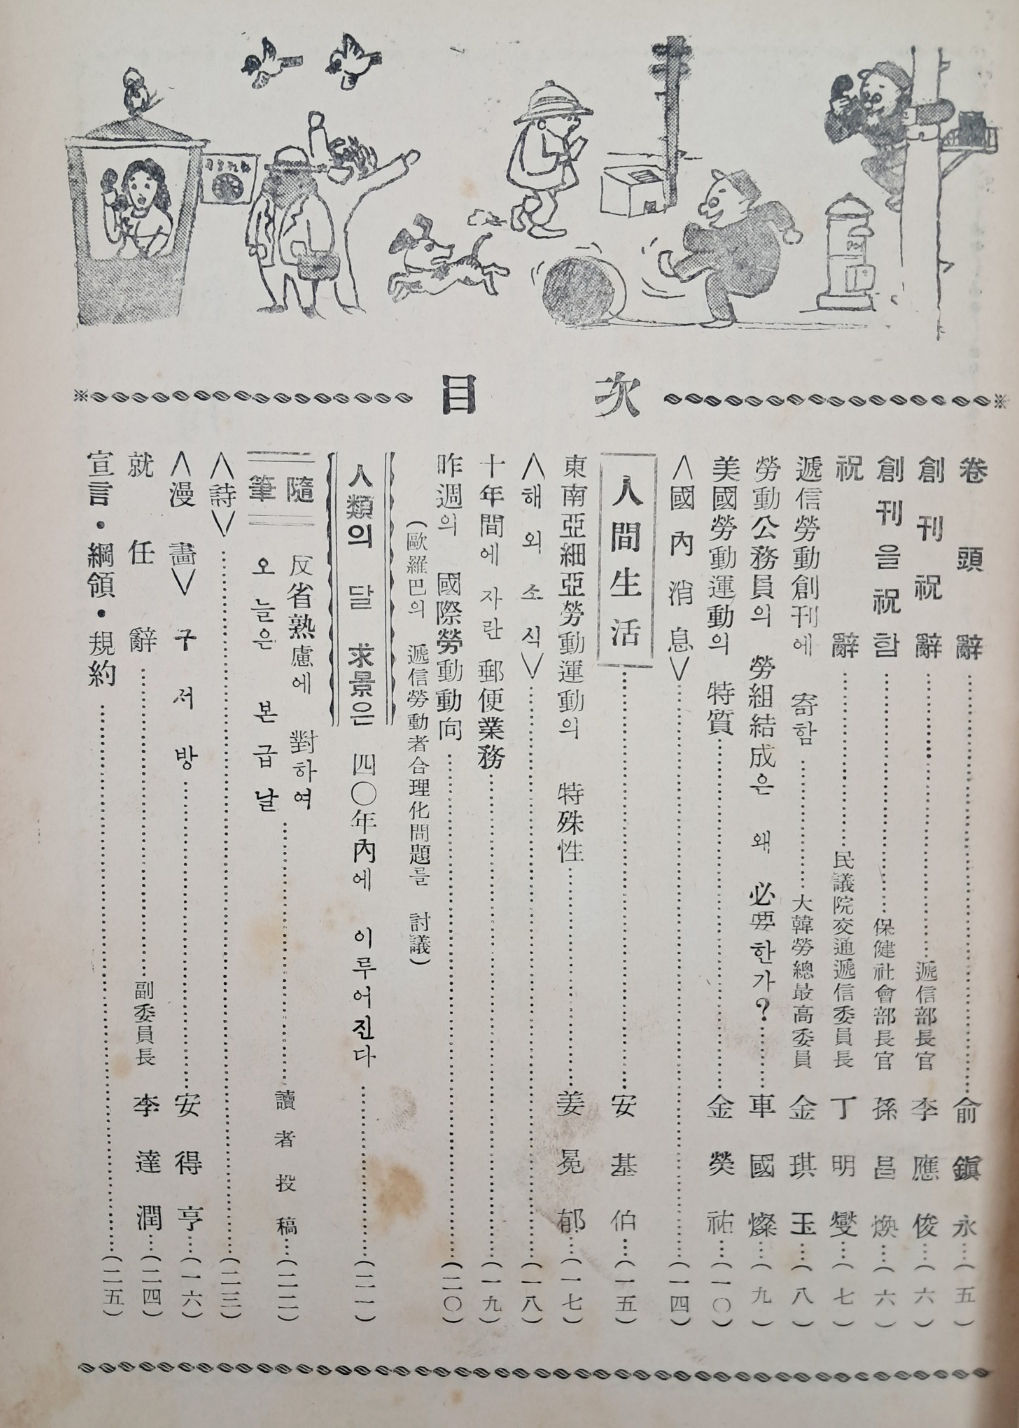 目次
卷頭辭……兪鎭永…(五)
創刊祝辭……遞信部長官 李應俊…(六)
創刊을 祝함……保健社會部長官 孫昌煥…(六)
祝辭……民議院交通遞信委員長 丁明燮…(七)
遞信勞動創刊에 寄함……大韓勞總最高委員 金琪玉…(八)
勞動公務員의 勞組結成은 왜 必要한가?……車國燦…(九)
美國勞動運動의 特質……金榮祐…(一〇)
<國內消息>……(一四)
人間生活……安基伯…(一五)
東南亞細亞勞動運動의 特殊性……姜冕郁…(一七)
<해외소식>……(一八)
十年間에 자란 郵便業務……(一九)
昨週의 國際勞動動向……(二〇)
(歐羅巴의 遞信勞動者合理化問題를 討議)
人類의 달 求景은 四〇年內에 이루어진다……(二一)
隨筆
反省熟慮에 對하여
오늘은 본급날……讀者投稿…(二二)
<詩>……(二三)
<漫畵> 구서방……安得亨…(一六)
就任辭……副委員長 李達潤…(二四)
宣言・綱領・規約……(二五)